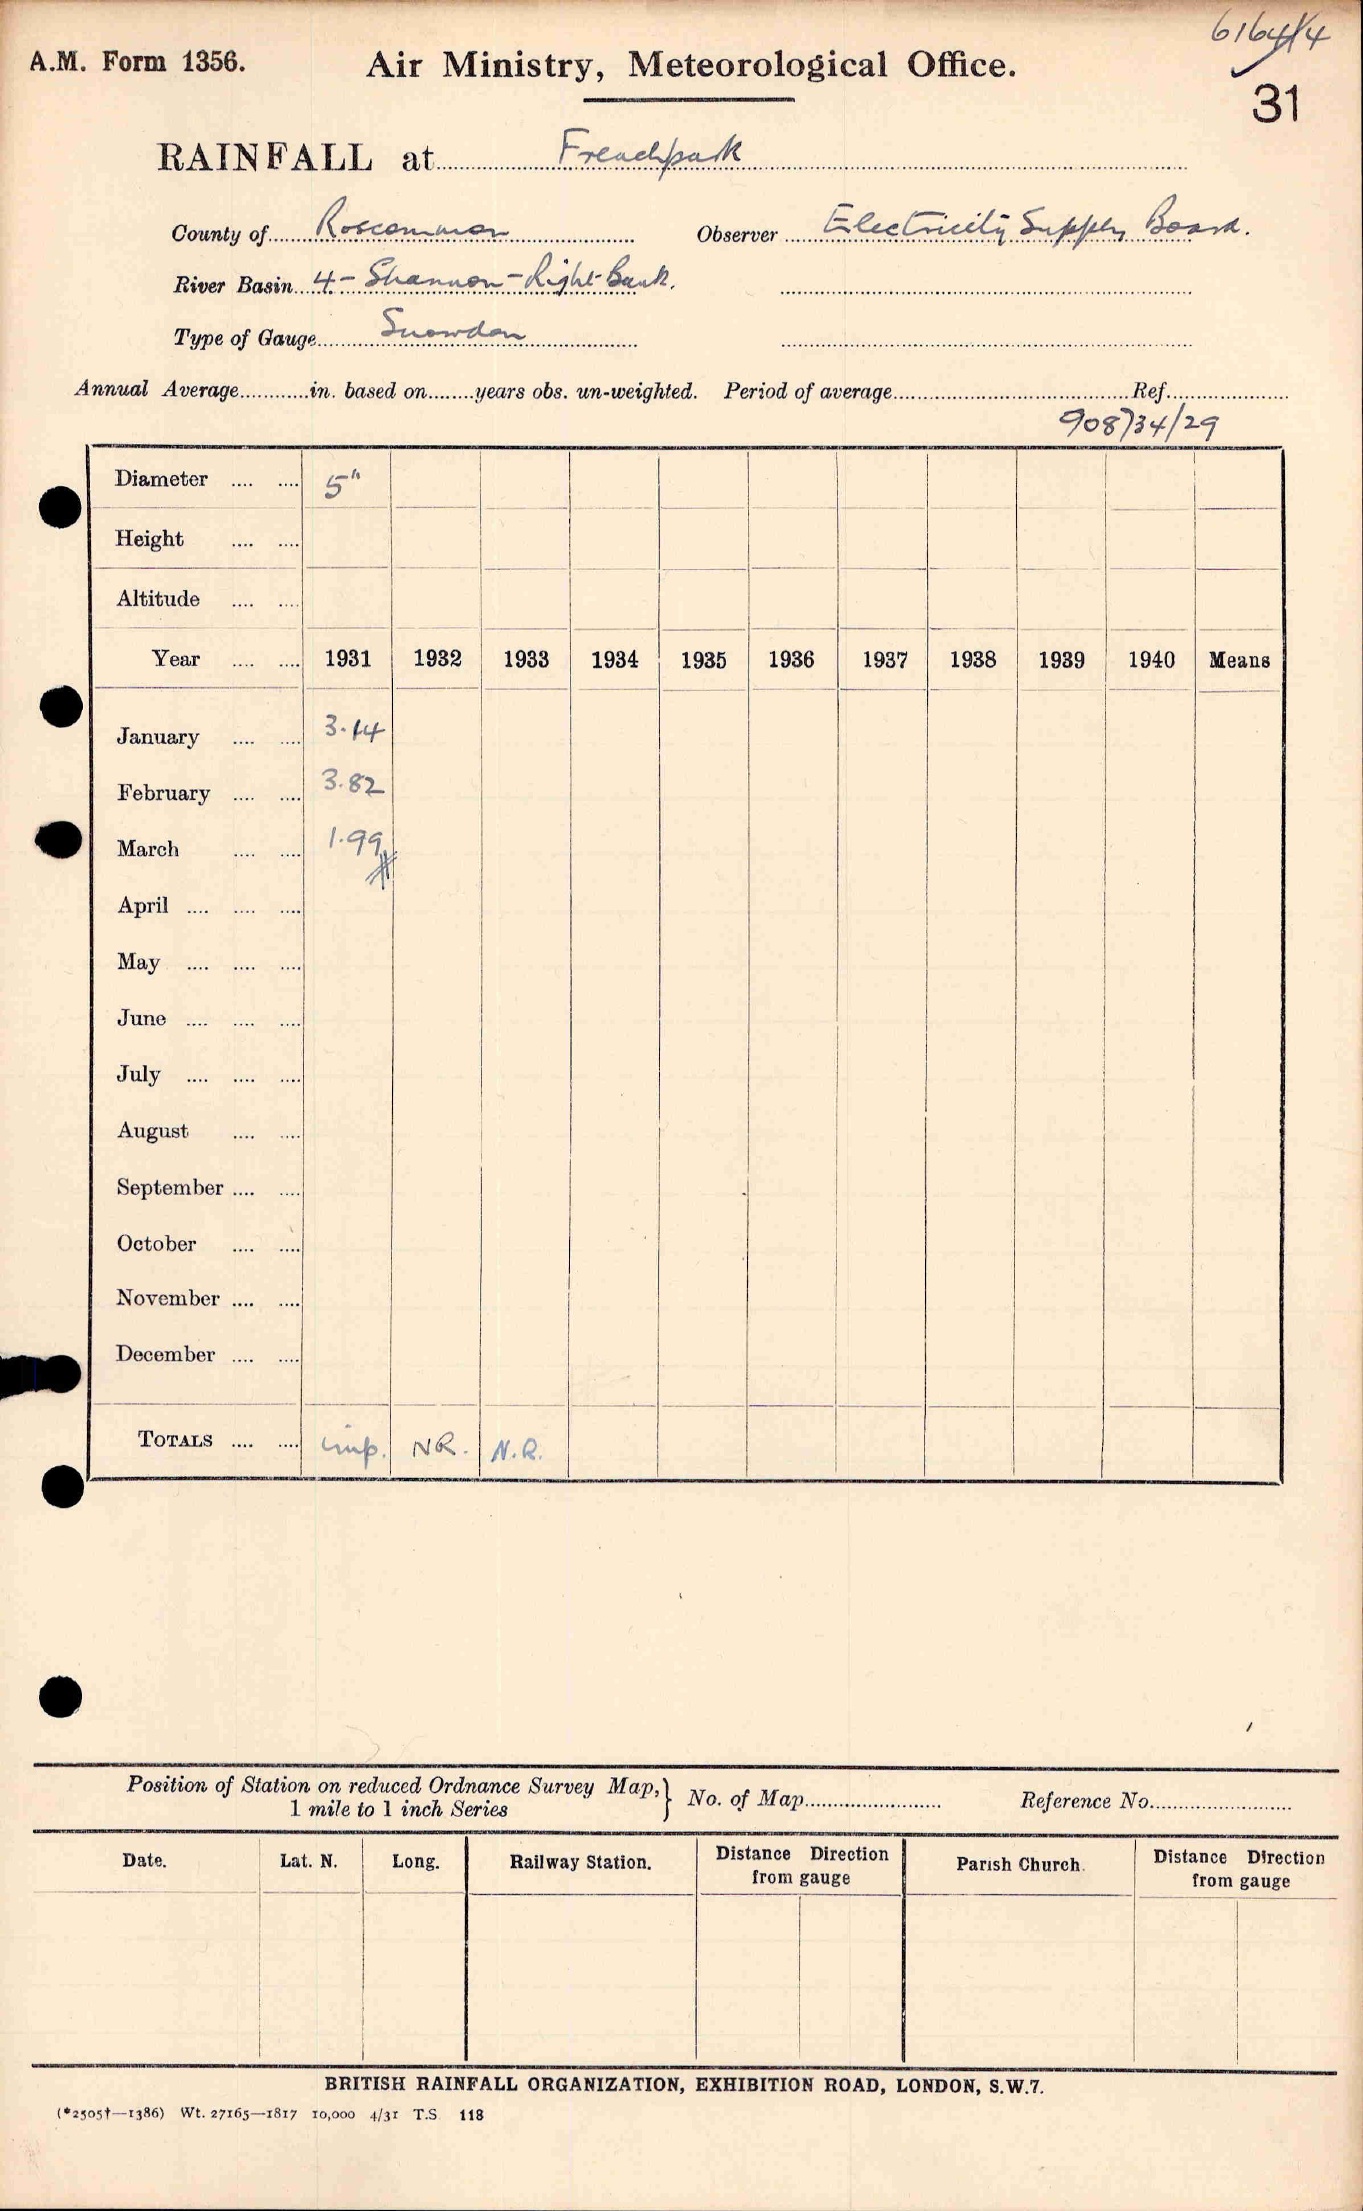 6164/4
A.M. Form 1356. Air Ministry, Meteorological Office.
31
RAINFALL at Frenchpark
County of Roscommon Observer Electricity Supply Board.
River Basin 4 - Shannon - Right Bank.
Type of Gauge Snowdon
Annual Average............in. based on........years obs. un-weighted. Period of average..............Ref..............
908734/29
Diameter .... .... 5"
Height .... ....
Altitude .... ....
Year .... .... 1931 1932 1933 1934 1935 1936 1937 1938 1939 1940 Means
January .... .... 3.14
February .... .... 3.82
March .... .... 1.99
April .... .... ....
May .... .... ....
June .... .... ....
July .... .... ....
August .... ....
September .... ....
October .... ....
November .... ....
December .... ....
TOTALS .... .... imp. NR. N.R.
Position of Station on reduced Ordnance Survey Map, } No. of Map.............. Reference No..............
1 mile to 1 inch Series
Date. Lat. N. Long. Railway Station. Distance Direction from gauge Parish Church. Distance Direction from gauge
BRITISH RAINFALL ORGANIZATION, EXHIBITION ROAD, LONDON, S.W.7.
(*2505†—1386) Wt. 27165—1817 10,000 4/31 T.S. 118